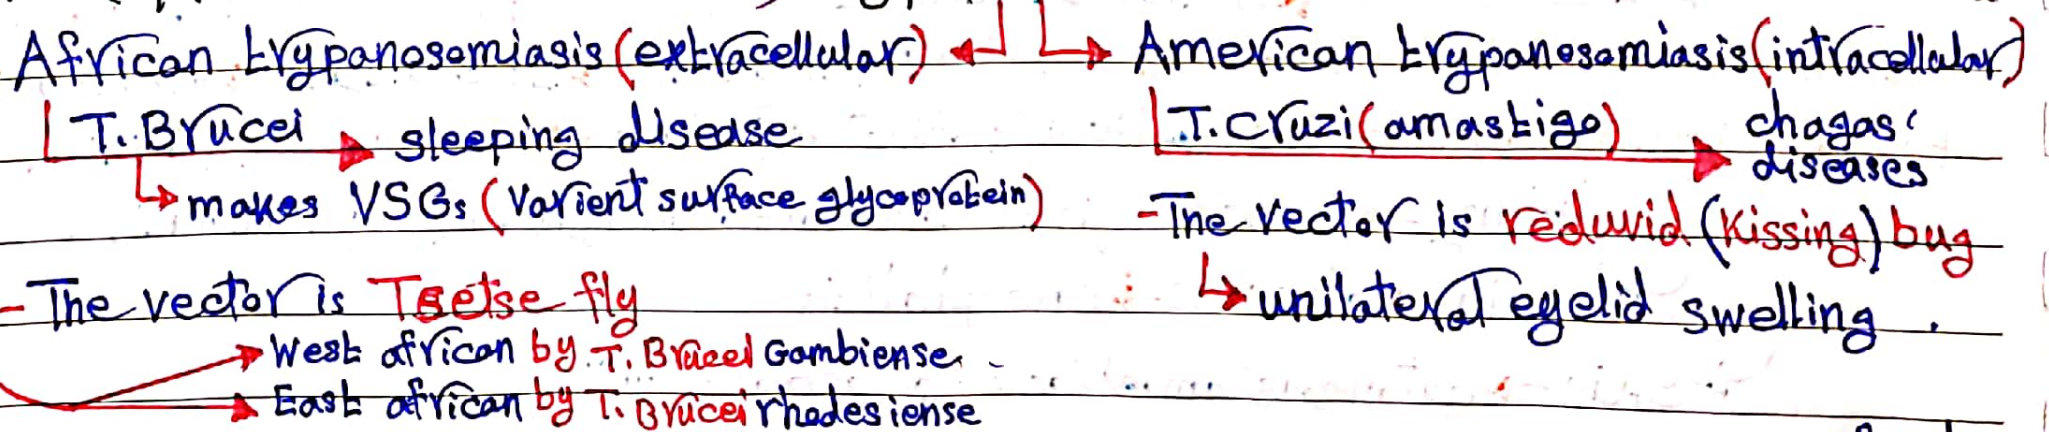 African trypanosomiasis (extracellular)
T. Brucei → sleeping disease
↳ makes VSGs (varient surface glycoprotein)
- The vector is Tsetse fly
→ West african by T. Brucei Gambiense
→ East african by T. Brucei rhodesiense
American trypanosomiasis (intracellular)
T. cruzi (amastigo) → chagas'
diseases
- The vector is reduvid (kissing) bug
↳ unilateral eyelid swelling.